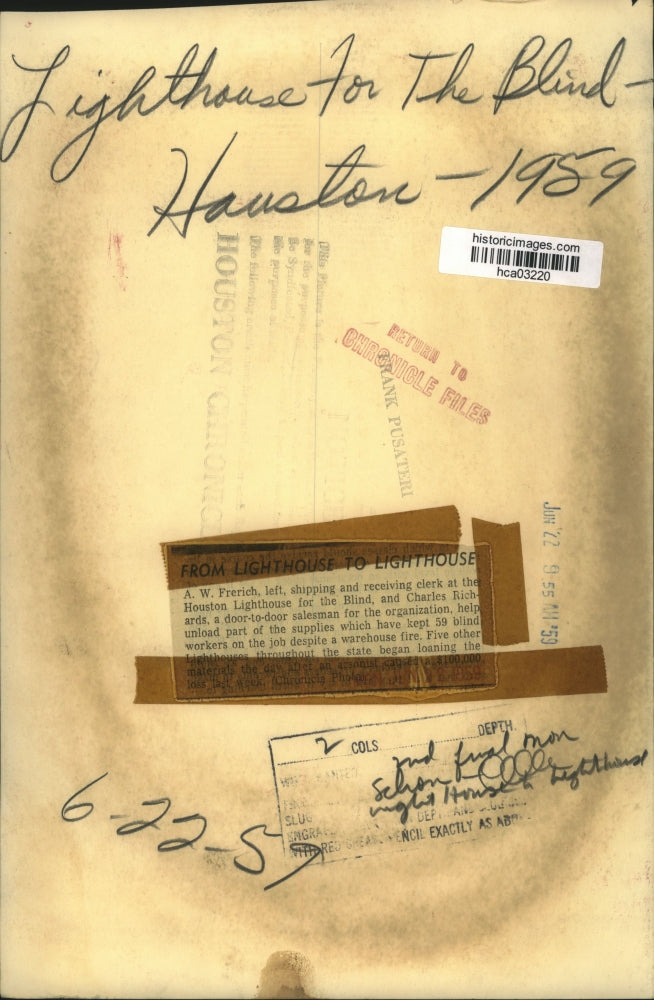 Lighthouse For The Blind-
Houston - 1959
historicimages.com
hca03220
(This Picture is
For the purposes
Be Syndicated
the purposes
The following
HOUSTON CHRONIC
RETURN TO
CHRONICLE FILES
FRANK PUSATERI
JUN 22 9 55 AM '59
FROM LIGHTHOUSE TO LIGHTHOUSE
A. W. Frerich, left, shipping and receiving clerk at the
Houston Lighthouse for the Blind, and Charles Rich-
ards, a door-to-door salesman for the organization, help
unload part of the supplies which have kept 59 blind
workers on the job despite a warehouse fire. Five other
Lighthouses throughout the state began loaning the
materials the day after an arsonist caused a $100,000
loss last week. (Chronicle Photo)
2 COLS DEPTH
2nd final mon
night House Lighthouse
SLUG
DEPT. AND SLUG
ENGRAV
WITH RED GREASE PENCIL EXACTLY AS ABO
6-22-59